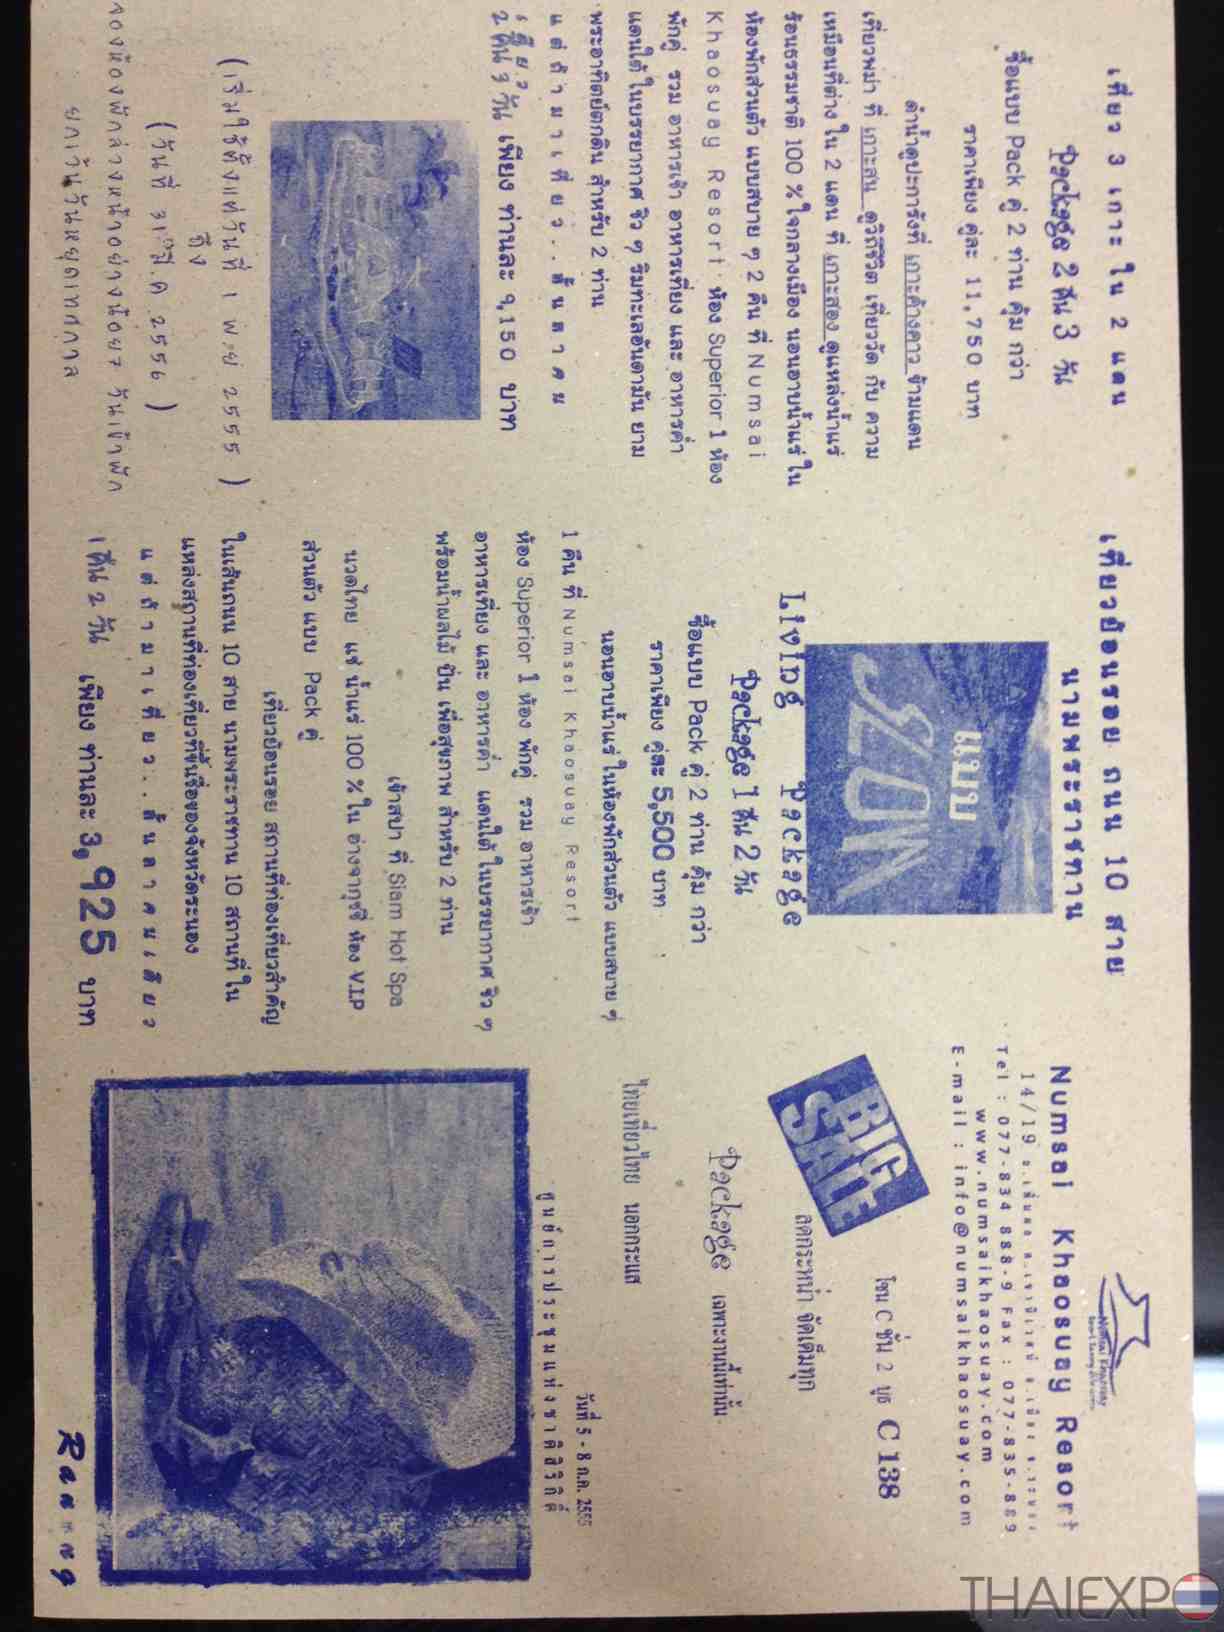 เที่ยว 3 เกาะ ใน 2 แดน
Package 2 คืน 3 วัน
ซื้อแบบ Pack คู่ 2 ท่าน คุ้ม กว่า
ราคาเพียง คู่ละ 11,750 บาท
ดำน้ำดูปะการังที่ เกาะค้างคาว ข้ามแดน
เที่ยวพม่า ที่ เกาะสน ดูวิถีชีวิต เที่ยววัด กับ ความ
เหมือนที่ต่าง ใน 2 แดน ที่ เกาะสอง ดูแหล่งน้ำแร่
ร้อนธรรมชาติ 100 % ใจกลางเมือง นอนอาบน้ำแร่ ใน
ห้องพักส่วนตัว แบบสบาย ๆ 2 คืน ที่ Numsai
Khaosuay Resort ห้อง Superior 1 ห้อง
พักคู่ รวม อาหารเช้า อาหารเที่ยง และ อาหารค่ำ
แดนใต้ ในบรรยากาศ ชิว ๆ ริมทะเลอันดามัน ยาม
พระอาทิตย์ตกดิน สำหรับ 2 ท่าน
แต่ถ้ามาเที่ยว..สั้นลาคน
เดียว
2 คืน 3 วัน เพียง ท่านละ 9,150 บาท
(เริ่มใช้ตั้งแต่วันที่ 1 พ.ย 2555 )
ถึง
(วันที่ 31 มี.ค 2556 )
จองห้องพักล่วงหน้าอย่างน้อย 7 วันเข้าพัก
ยกเว้นวันหยุดเทศกาล
เที่ยวย้อนรอย ถนน 10 สาย
นามพระราชทาน
แบบ
SLOW
Living Package
Package 1 คืน 2 วัน
ซื้อแบบ Pack คู่ 2 ท่าน คุ้ม กว่า
ราคาเพียง คู่ละ 5,500 บาท
นอนอาบน้ำแร่ ในห้องพักส่วนตัว แบบสบาย ๆ
1 คืน ที่ Numsai Khaosuay Resort
ห้อง Superior 1 ห้อง พักคู่ รวม อาหารเช้า
อาหารเที่ยง และ อาหารค่ำ แดนใต้ ในบรรยากาศ ชิว ๆ
พร้อมน้ำผลไม้ ปั่น เพื่อสุขภาพ สำหรับ 2 ท่าน
เข้าสปา ที่ Siam Hot Spa
นวดไทย แช่ น้ำแร่ 100 % ใน อ่างจากุชชี่ ห้อง V.I.P
ส่วนตัว แบบ Pack คู่
เที่ยวย้อนรอย สถานที่ท่องเที่ยวสำคัญ
ในเส้นถนน 10 สาย นามพระราชทาน 10 สถานที่ ใน
แหล่งสถานที่ท่องเที่ยวที่ขึ้นชื่อของจังหวัดระนอง
แต่ถ้ามาเที่ยว..สั้นลาคนเดียว
1 คืน 2 วัน เพียง ท่านละ 3,925 บาท
Numsai Khaosuay
Numsai Khaosuay Resort
Tel : 077-834 888-9 Fax : 077-835-889
www.numsaikhaosuay.com
E-mail : info@numsaikhaosuay.com
โซน C ชั้น 2 บูธ C 138
BIG
SALE
ลดกระหน่ำ จัดเต็มทุก
Package เฉพาะงานนี้เท่านั้น
ไทยเที่ยวไทย นอกกระแส
วันที่ 5 - 8 ก.ค. 2555
ศูนย์การประชุมแห่งชาติสิริกิติ์
Ranong
THAIEXPO